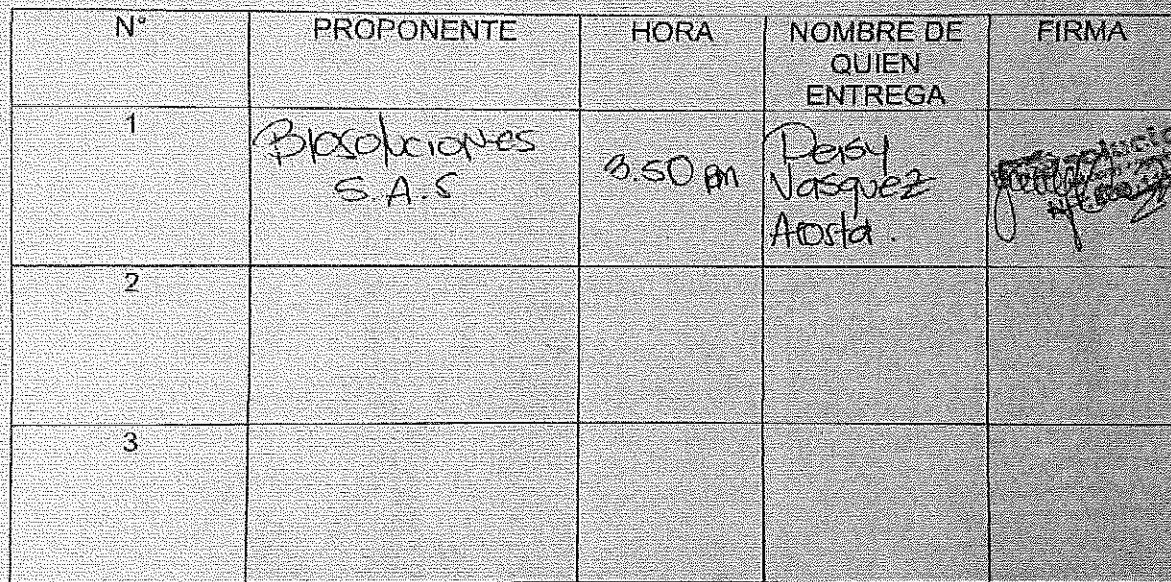 N° PROPONENTE HORA NOMBRE DE QUIEN ENTREGA FIRMA
1 Biosoluciones S.A.S 3.50 pm Deisy Vasquez Acosta.
2
3